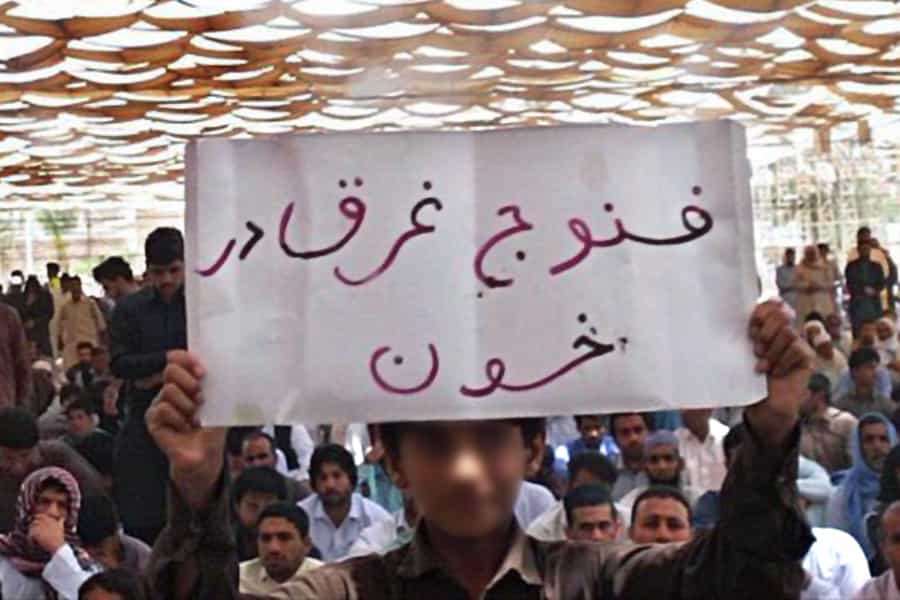 فنوج غرقادر
خون